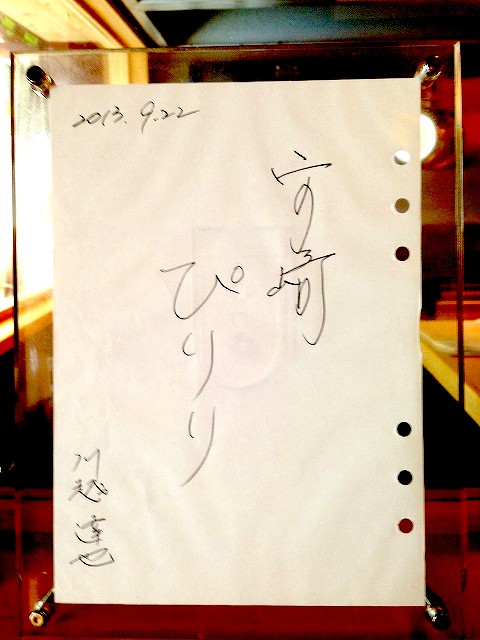 2013.9.22
宮崎
ぴりり
川越達也